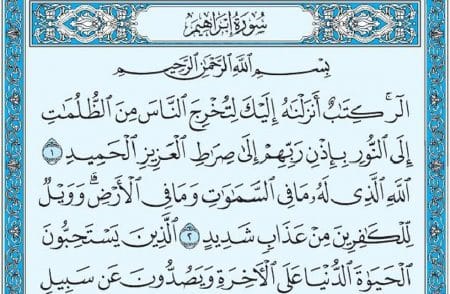 سُورَةُ إِبْرَاهِيم
بِسْمِ اللَّهِ الرَّحْمَٰنِ الرَّحِيمِ
الٓرۚ كِتَٰبٌ أَنزَلْنَٰهُ إِلَيْكَ لِتُخْرِجَ النَّاسَ مِنَ الظُّلُمَٰتِ
إِلَى النُّورِ بِإِذْنِ رَبِّهِمْ إِلَىٰ صِرَٰطِ الْعَزِيزِ الْحَمِيدِ ١
اللَّهِ الَّذِي لَهُۥ مَا فِي السَّمَٰوَٰتِ وَمَا فِي الْأَرْضِۗ وَوَيْلٌ
لِّلْكَٰفِرِينَ مِنْ عَذَابٍ شَدِيدٍ ٢ الَّذِينَ يَسْتَحِبُّونَ
الْحَيَوٰةَ الدُّنْيَا عَلَى الْأَخِرَةِ وَيَصُدُّونَ عَن سَبِيلِ